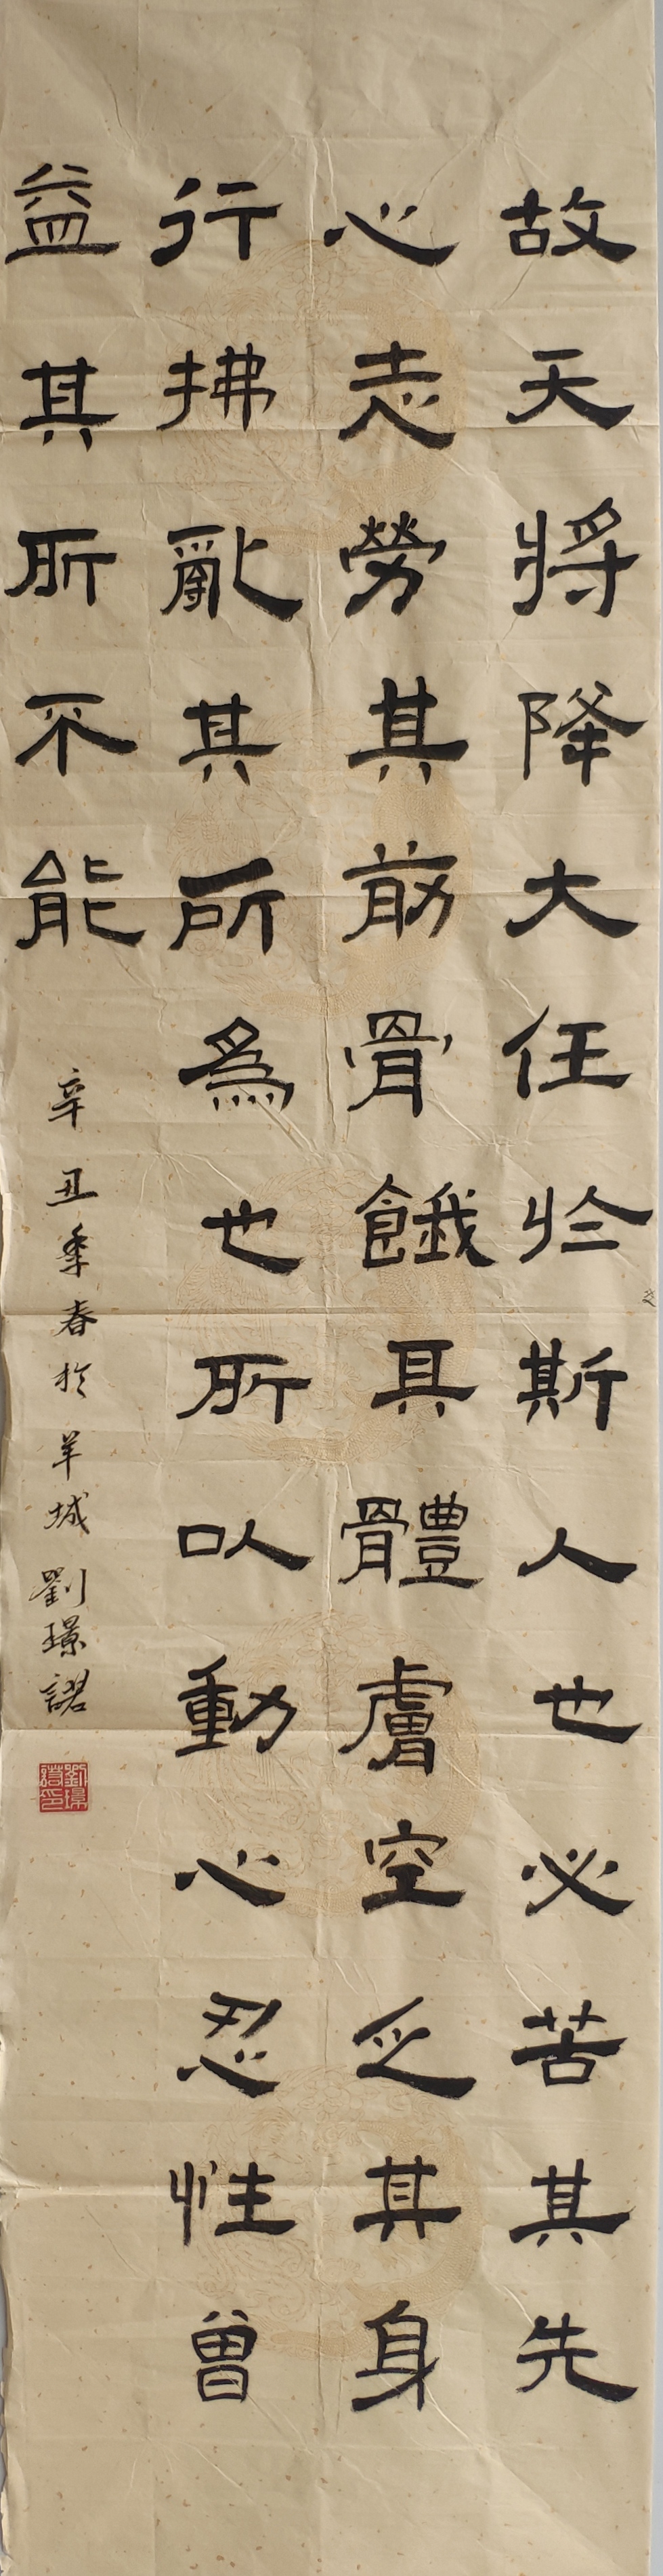 故天將降大任於斯人也必苦其先
心志勞其筋骨餓具體膚空乏其身
行拂亂其所為也所以動心忍性曾
益其所不能
辛丑季春於羊城劉璟諾
劉璟諾印